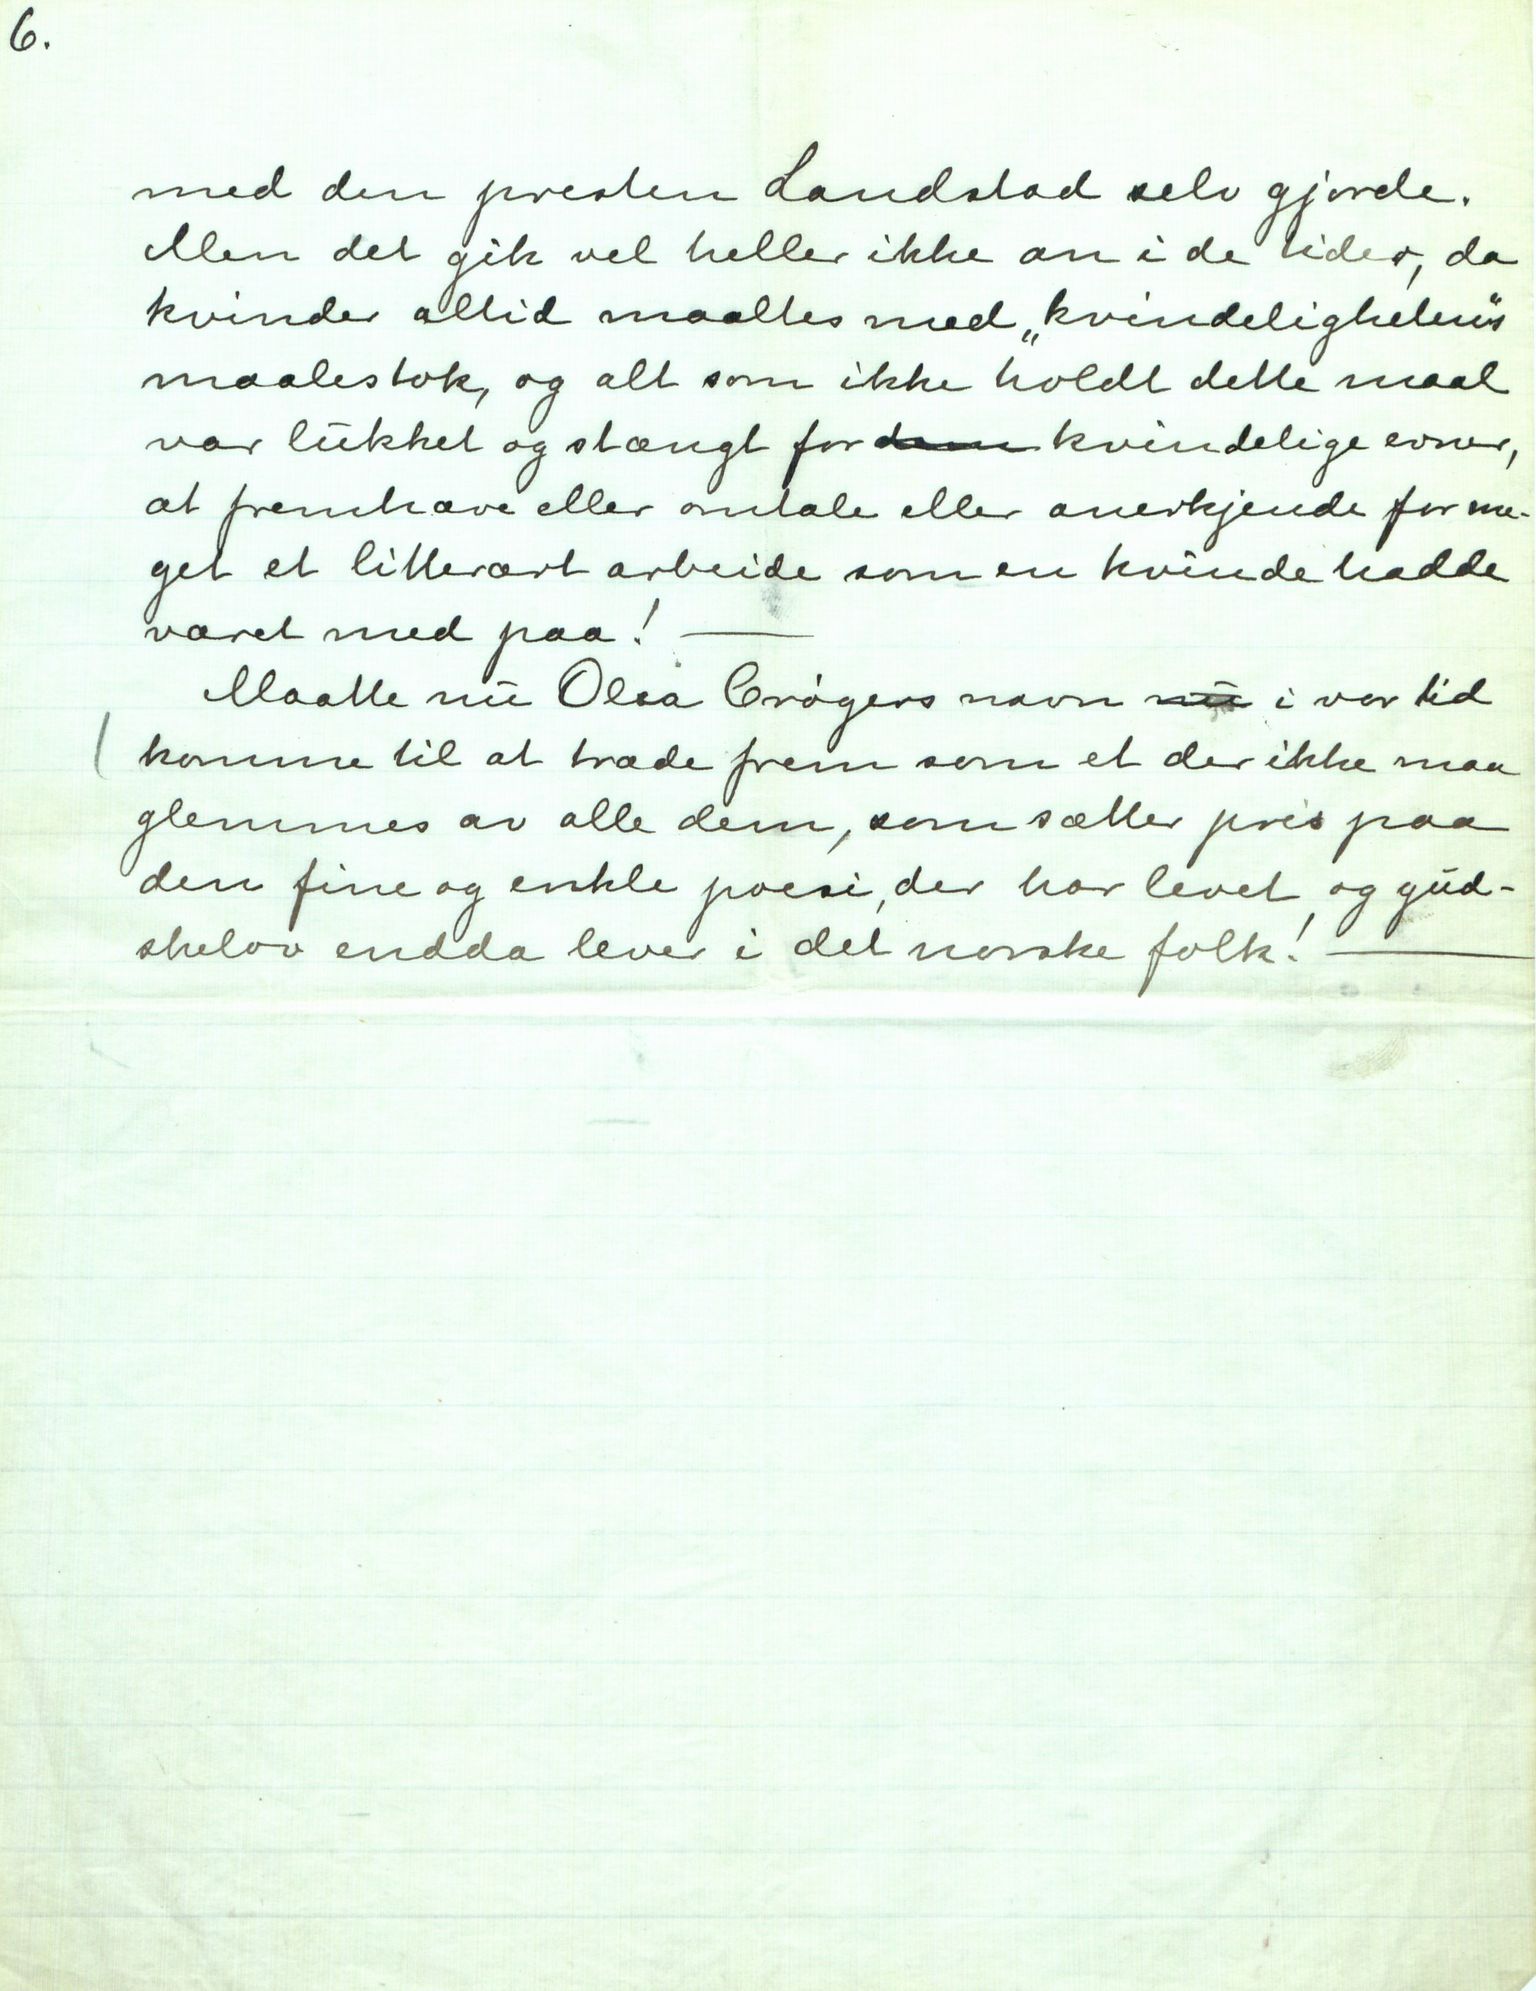 6.
med den presten Landstad selv gjorde.
Men det gik vel heller ikke an i de tider, da
kvinder altid maaltes med „kvindelighetens“
maalestok, og alt som ikke holdt dette maal
var lukket og stængt for dem kvindelige evner,
at fremhæve eller omtale eller anerkjende for me-
get et litterært arbeide som en kvinde hadde
været med paa! —
Maatte nu Olea Crøgers navn nu i vor tid
komme til at træde frem som et der ikke maa
glemmes av alle dem, som sætter pris paa
den fine og enkle poesi, der har levet og gud-
skelov endda lever i det norske folk! —